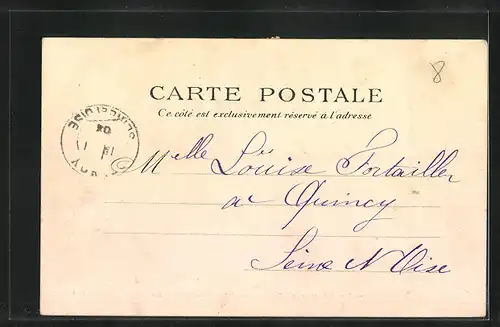 8
CARTE POSTALE
Ce côté est exclusivement réservé à l'adresse
04
Melle Louise Fortailler
a Quincy
Seine N Oise